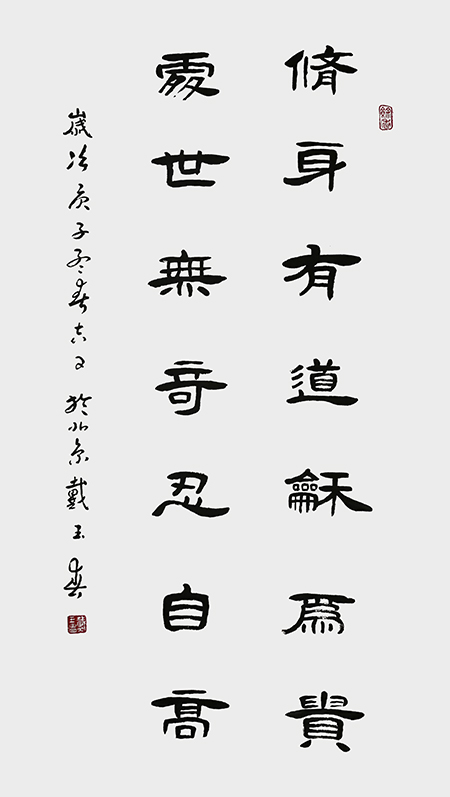 脩身有道龢爲貴
處世無奇忍自高
歲次庚子孟春吉日於北京戴玉